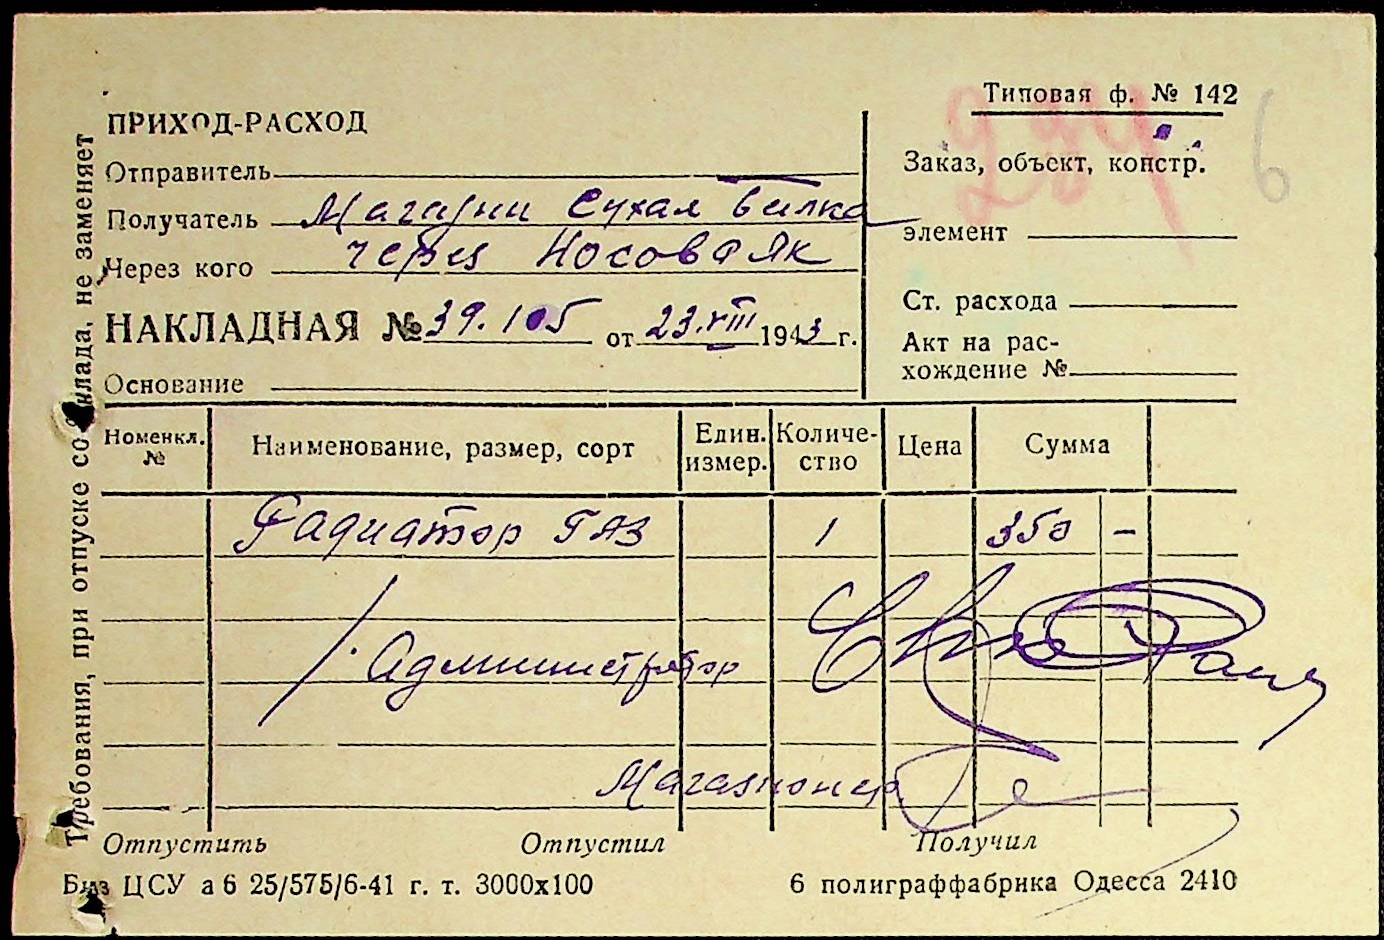 Типовая ф. № 142
ПРИХОД-РАСХОД
Отправитель
Получатель Сухая балка
Через кого через Носовая
НАКЛАДНАЯ № 39.105 от 23.VIII 1943 г.
Основание
Заказ, объект, констр.
элемент
Ст. расхода
Акт на рас-
хождение №
6
Номенкл. №
Наименование, размер, сорт
Един. измер.
Количе-
ство
Цена
Сумма
Радиатор ГАЗ 1 350 –
Администратор
Магазионер
Отпустить Отпустил Получил
Биаз ЦСУ а 6 25/575/6-41 г. т. 3000х100 6 полиграффабрика Одесса 2410
Требования, при отпуске со склада, не заменяет